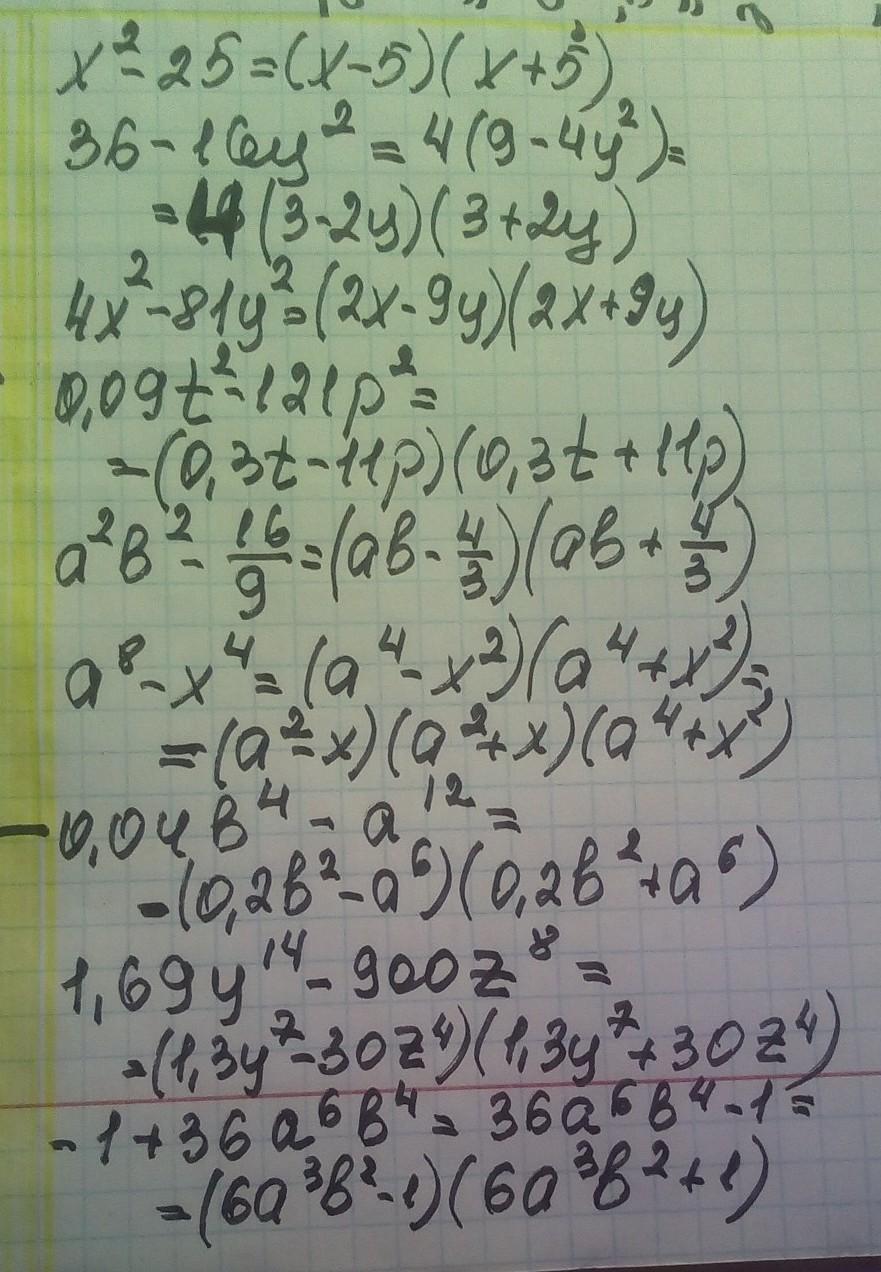 x² - 25 = (x - 5)(x + 5)
36 - 16y² = 4(9 - 4y²) =
= 4(3 - 2y)(3 + 2y)
4x² - 81y² = (2x - 9y)(2x + 9y)
0,09t² - 121p² =
= (0,3t - 11p)(0,3t + 11p)
a²b² - 16/9 = (ab - 4/3)(ab + 4/3)
a⁸ - x⁴ = (a⁴ - x²)(a⁴ + x²) =
= (a² - x)(a² + x)(a⁴ + x²)
0,04b⁴ - a¹² =
= (0,2b² - a⁶)(0,2b² + a⁶)
1,69y¹⁴ - 900z⁸ =
= (1,3y⁷ - 30z⁴)(1,3y⁷ + 30z⁴)
- 1 + 36a⁶b⁴ = 36a⁶b⁴ - 1 =
= (6a³b² - 1)(6a³b² + 1)